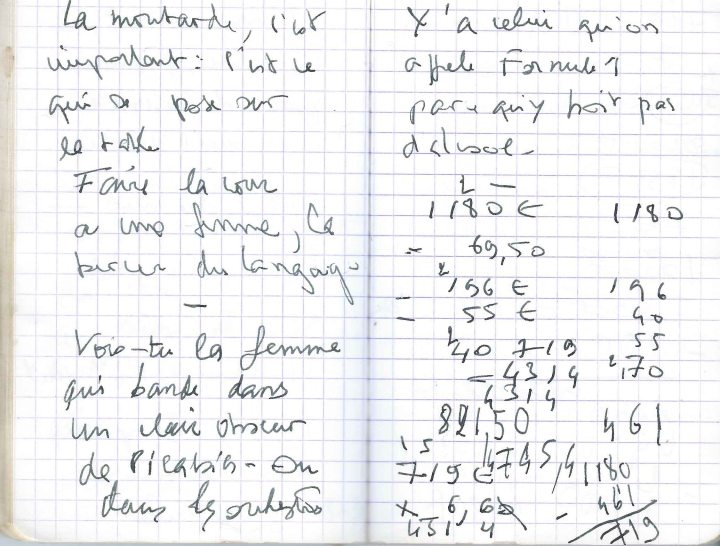 La moutarde, c'est
important : c'est ce
qui se pose sur
la table
Faire la cour
a une femme, la
du langage
—
Vois-tu la femme
qui bande dans
un clair obscur
de Picabia - Ou
dans les orchestres
Y'a celui qu'on
appele Formule 1
parce qu'y boit pas
d'alcool -
2 —
1180 € 1180
- 69,50
- 196 € 196
- 55 € 40
40 719 55
= 4314 170
4314
821,50 461
719 € 4745,4 1180
x 6,60 - 461
431 4 719